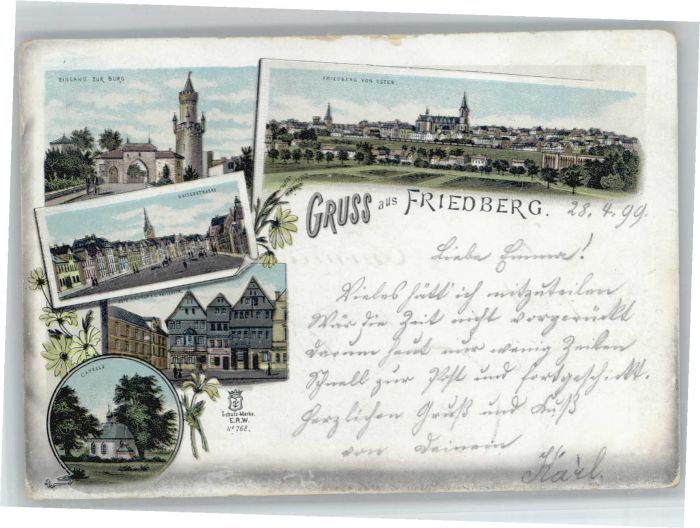 EINGANG ZUR BURG
FRIEDBERG VON OSTEN.
KAISERSTRASSE
CAPELLE
Schutz-Marke.
E.R.W.
Nº 768.
GRUSS aus FRIEDBERG.
28.4.99.
Liebe Emma!
Vieles hätt ich mitzuteilen
Wär die Zeit nicht vorgerückt
darum heut nur wenig Zeilen
Schnell zur Post und fortgeschickt.
Herzlichen Gruß und Kuß
von Deinem
Karl.